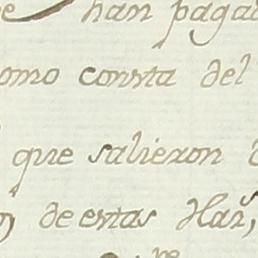 han pagad
omo consta del
que salieron
de estas Hazˢ,